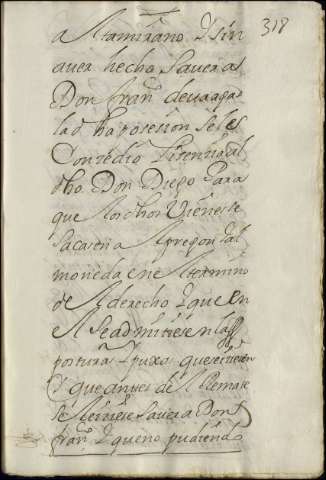 318
altamirano Y sin
aver hecho saver a
Don fran.co de vargas
la dha posesion se les
Consedio lisensia al
dho Don Diego para
que los dhos Vienes se
sacasen a Al pregon Y al
moneda en el termino
de el derecho Y que en
el se admitiesen las
posturas Y puxas que se hisiesen
Y que antes de el Remate
se hisiese saver a Don
fran.co Y que no pudiendo